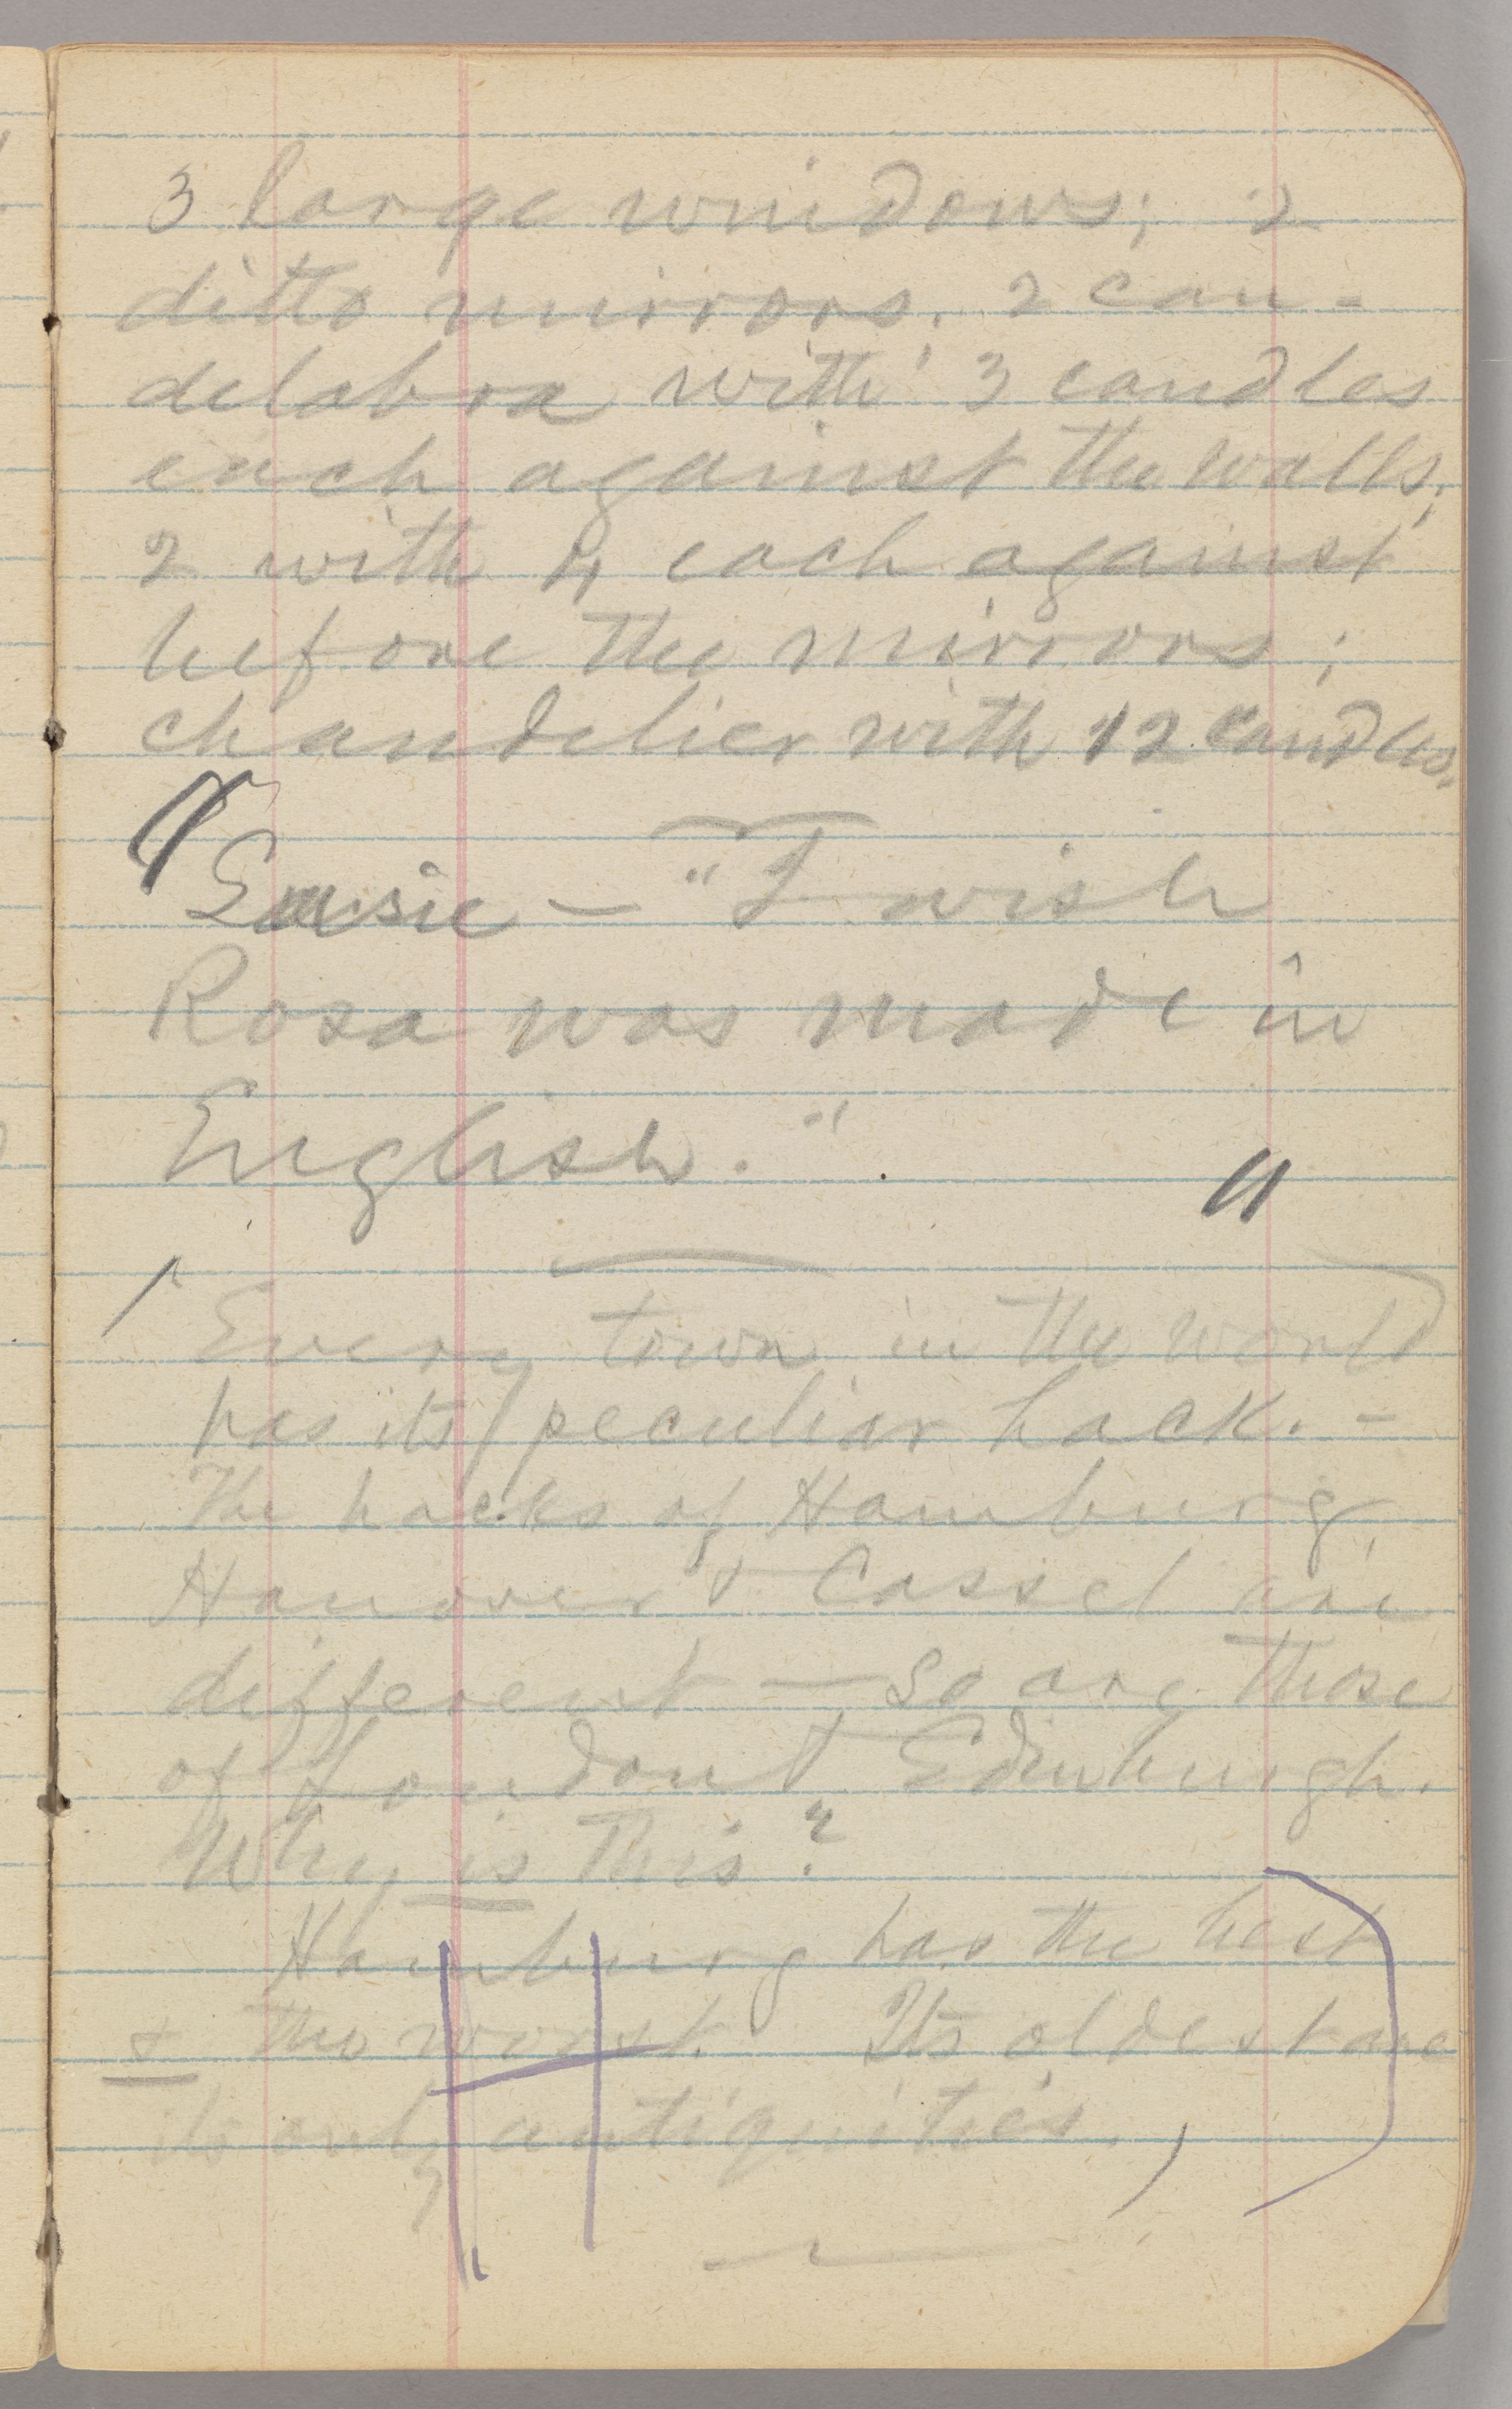 3 large windows; 2
ditto mirrors. 2 can-
delabra with 3 candles
each against the walls;
2 with 4 each against
before the mirrors;
chandelier with 12 candles.
Susie — "I wish
Rosa was made in
English."
Every town in the world
has its peculiar hack. -
The hacks of Hamburg,
Hanover & Cassel are
different — so are those
of London & Edinburgh.
Why is this?
Hamburg has the best
& the worst. Its oldest are
its only antiquities.